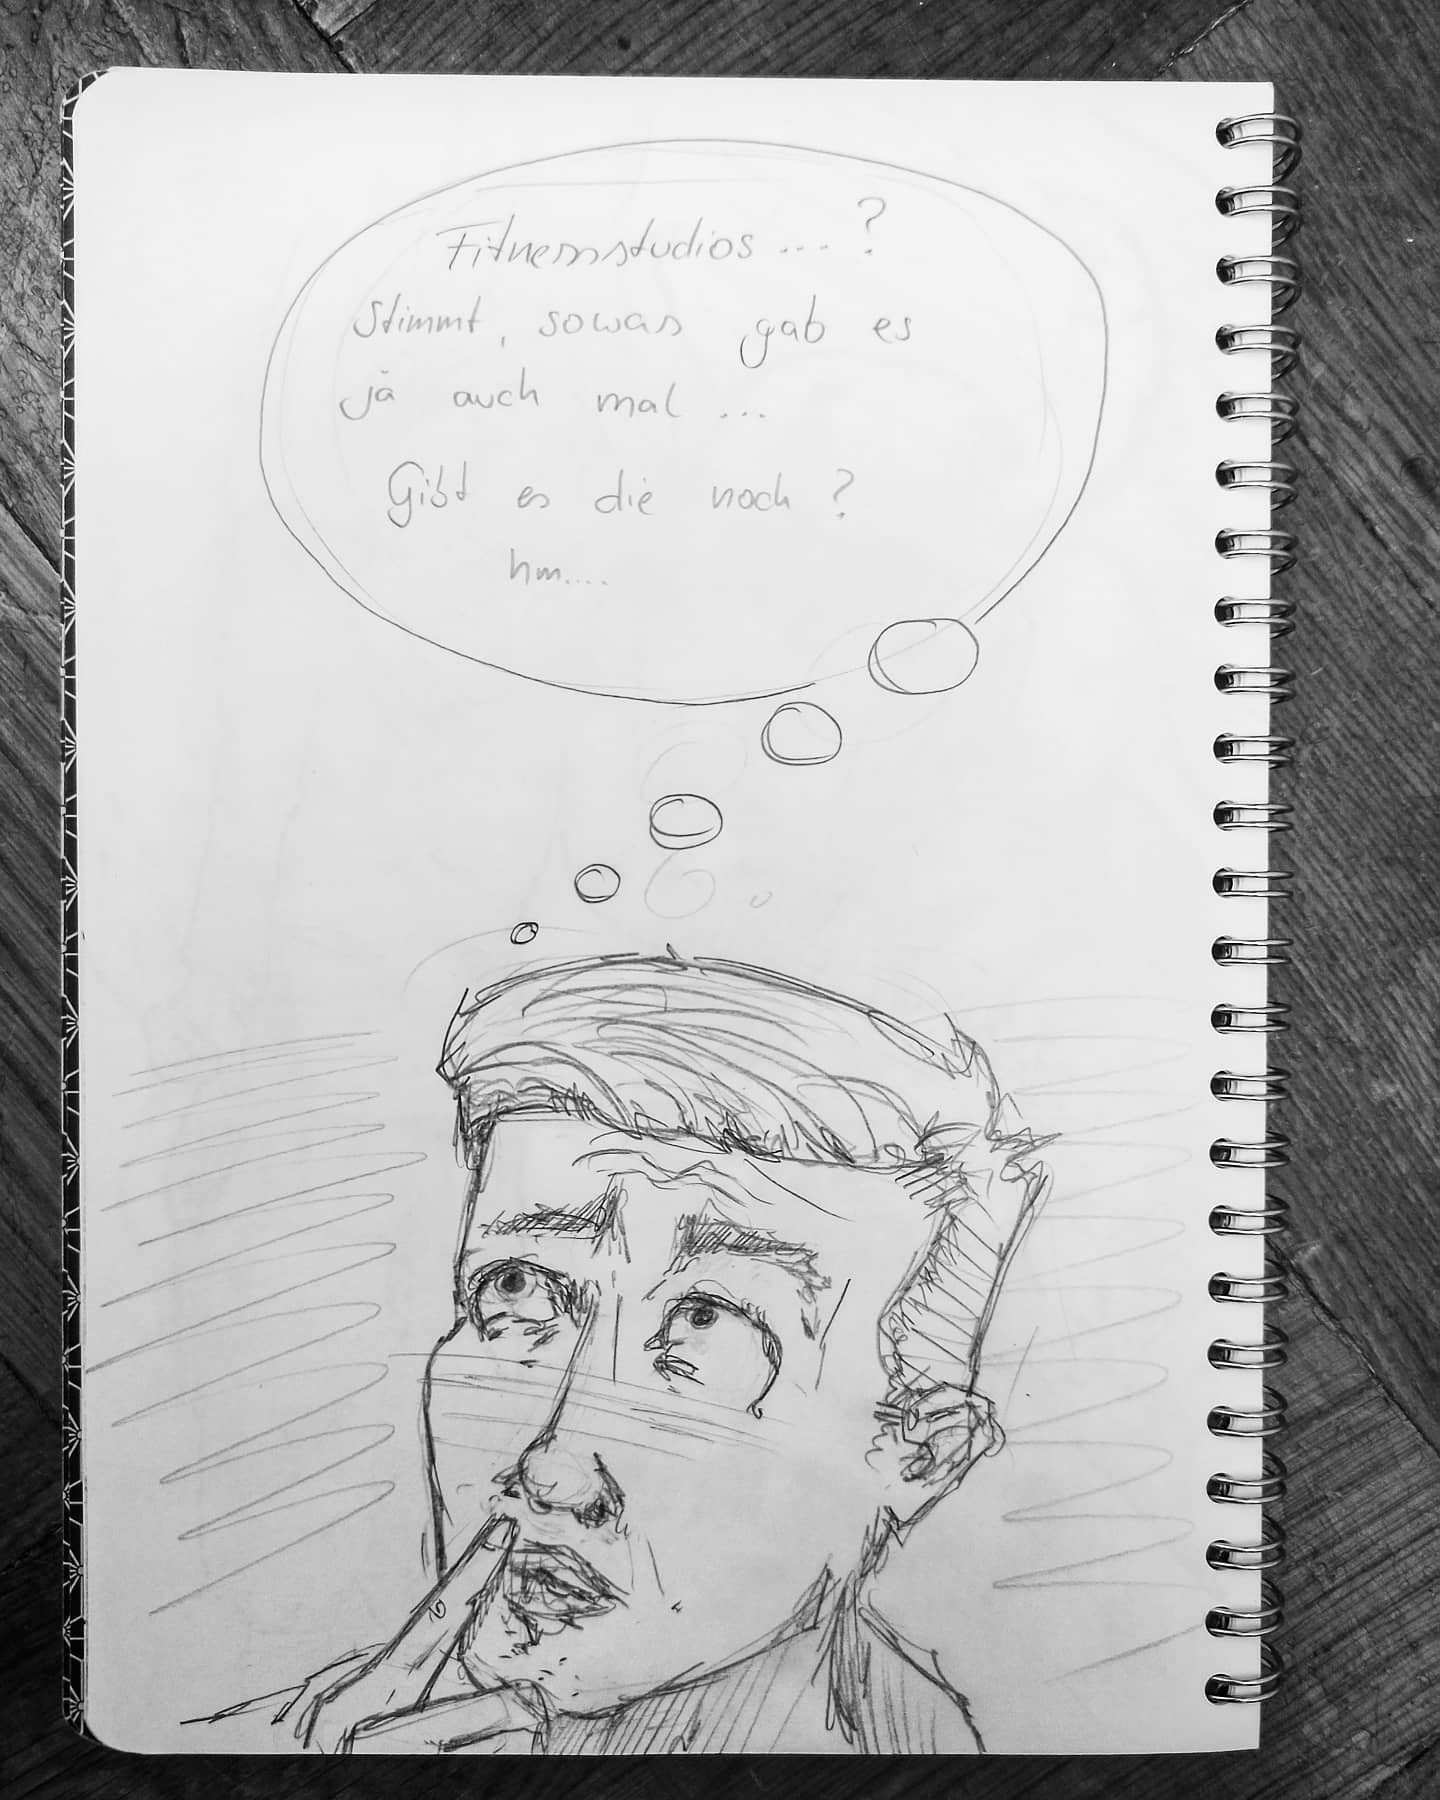 Fitnessstudios ... ?
Stimmt, sowas gab es
ja auch mal ...
Gibt es die noch ?
hm....